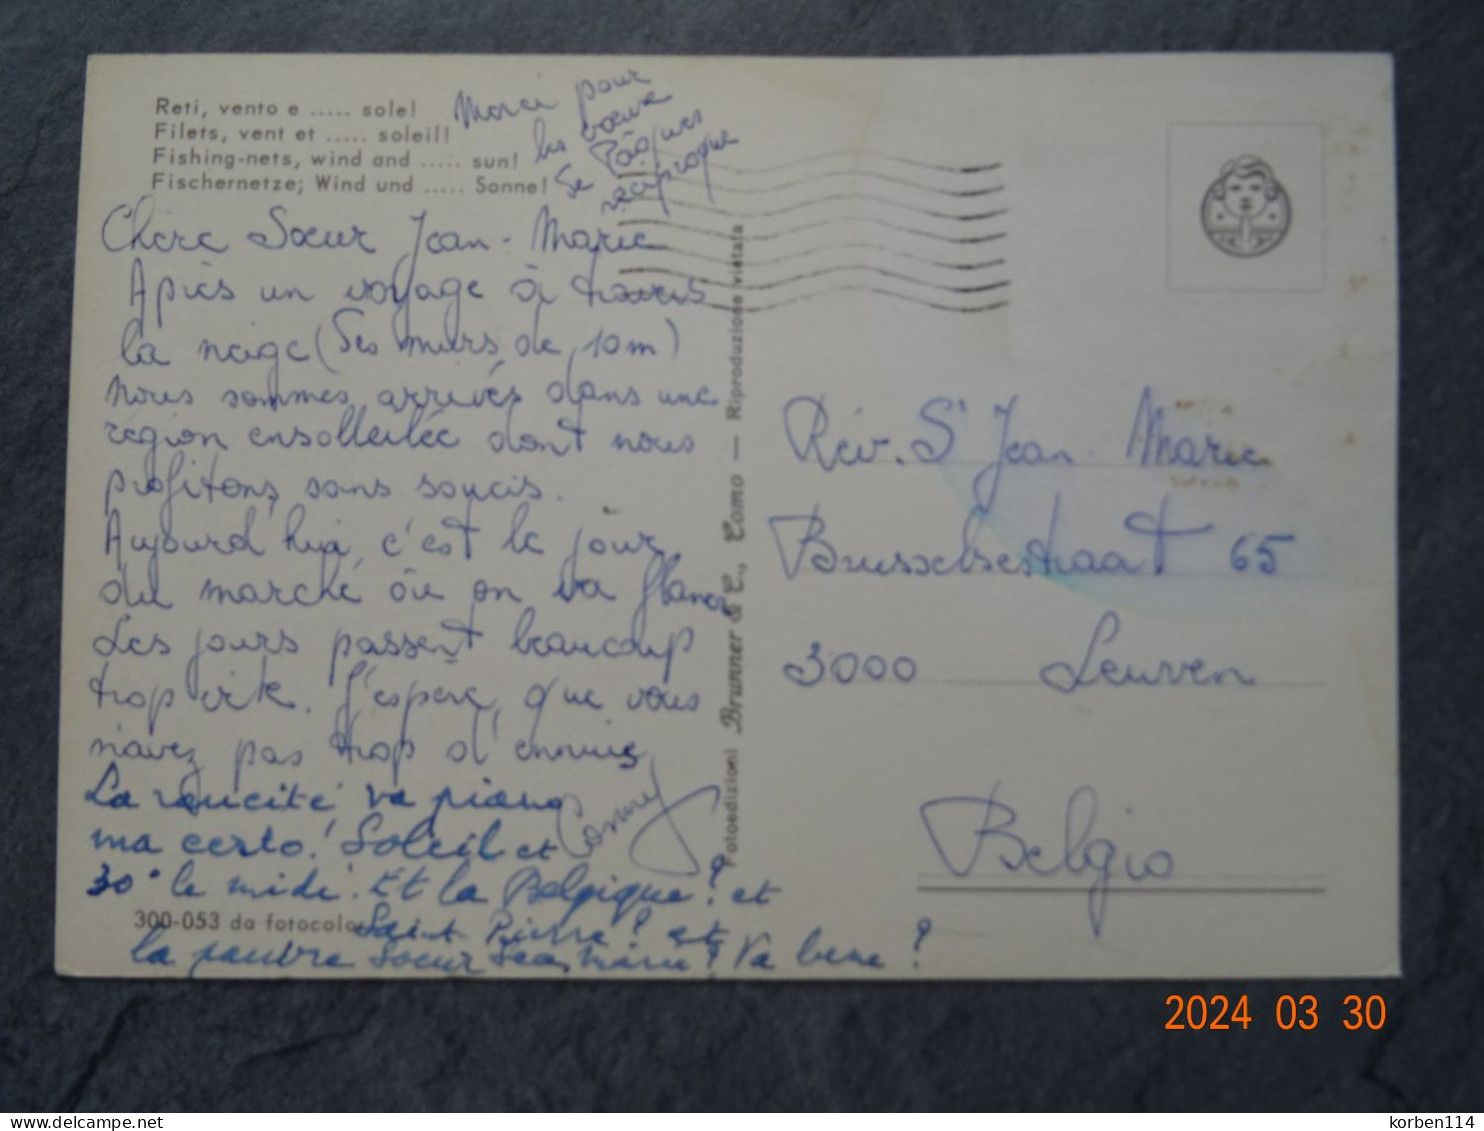 Reti, vento e ..... sole!
Filets, vent et ..... soleil!
Fishing-nets, wind and ..... sun!
Fischernetze; Wind und ..... Sonne!
Merci pour
les vœux
de Pâques
réciproque
Chère Sœur Jean-Marie
Après un voyage à travers
la neige (des murs de 10m)
nous sommes arrivés dans une
région ensolleilée dont nous
profitons sans soucis.
Aujourd'hui, c'est le jour
du marché où on va flaner
Les jours passent beaucoup
trop vite. J'espère que vous
n'avez pas trop d'ennuis
Conny
La va piano
ma certo! Soleil et
30° le midi. Et la Belgique? et
Saint Pierre? et
la pauvre Sœur Jean Marie? Va bene?
300-053 da fotocolor
Fotoedizioni Brunner & C., Como — Riproduzione vietata
Rév. Sr Jean-Marie
Brusselsestraat 65
3000 Leuven
Belgio
2024 03 30
korben114
delcampe.net